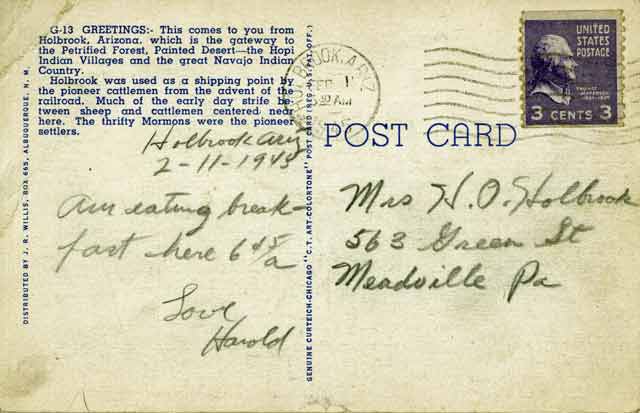 G-13 GREETINGS:- This comes to you from
Holbrook, Arizona, which is the gateway to
the Petrified Forest, Painted Desert—the Hopi
Indian Villages and the great Navajo Indian
Country.
Holbrook was used as a shipping point by
the pioneer cattlemen from the advent of the
railroad. Much of the early day strife be-
tween sheep and cattlemen centered near
here. The thrifty Mormons were the pioneer
settlers.
Holbrook Ariz
2-11-1945
Am eating break-
fast here 6 45/a
Love
Harold
DISTRIBUTED BY J. R. WILLIS, BOX 665, ALBUQUERQUE, N. M.
GENUINE CURTEICH-CHICAGO "C.T. ART-COLORTONE" POST CARD (REG. U.S. PAT. OFF.)
HOLBROOK, ARIZ
AM
UNITED
STATES
POSTAGE
THOMAS
JEFFERSON
3 CENTS 3
POST CARD
Mrs H. O. Holbrook
563 Green St
Meadville Pa